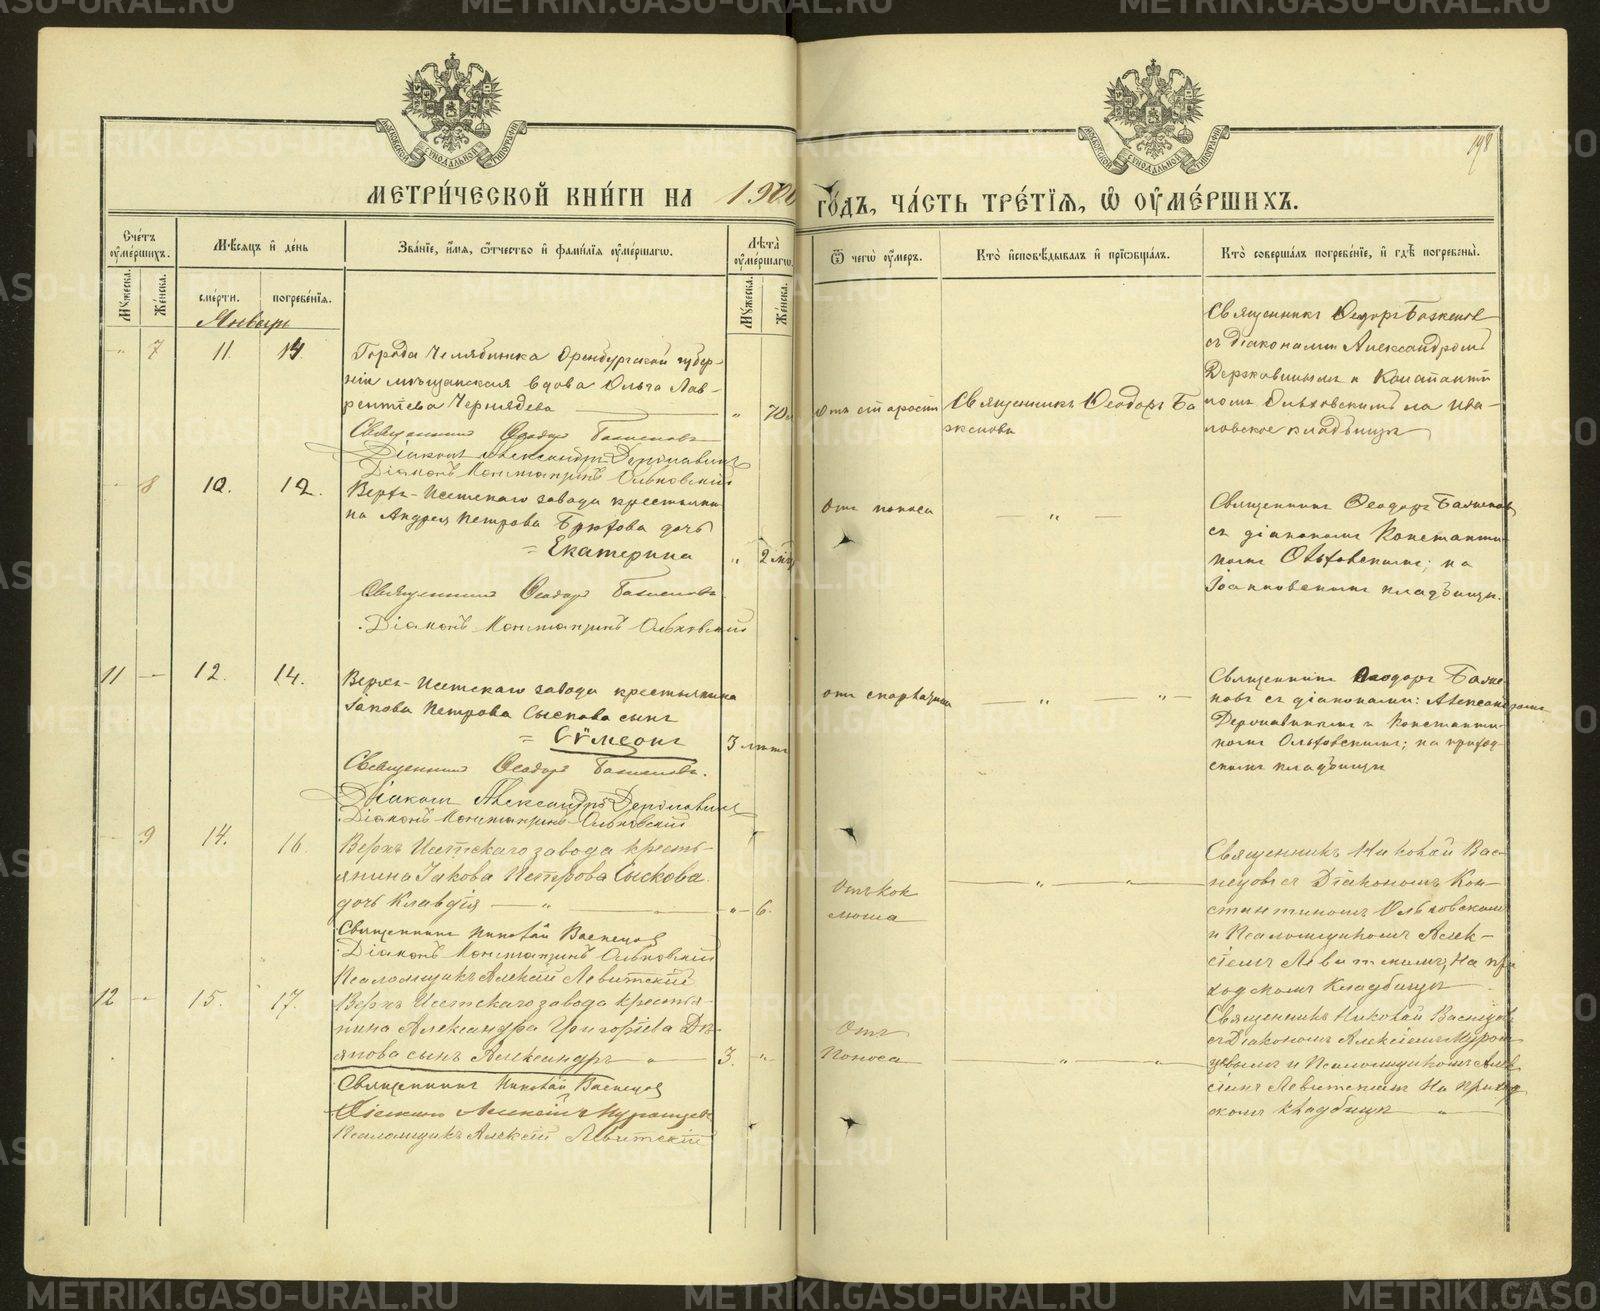 METRIKI.GASO-URAL.RU
198
МОСКОВСКОЙ СѴНОДАЛЬНОЙ ТИПОГРАФІИ
МОСКОВСКОЙ СѴНОДАЛЬНОЙ ТИПОГРАФІИ
МЕТРИ́ЧЕСКОЙ КНИ́ГИ НА 1900 ГО́ДЪ, ЧА́СТЬ ТРЕ́ТІЯ, Ѡ҆ ОУ҆МЕ́РШИХЪ.
Сче́тъ оу҆ме́ршихъ.
Мѣ́сяцъ и҆ де́нь
Зва́нїе, и҆́мя, ѻ҆́тчество и҆ фами́лїя оу҆ме́ршагѡ.
Лѣ́та оу҆ме́ршагѡ.
Ѿ чегѡ̀ оу҆́меръ.
Кто̀ и҆сповѣ́дывалъ и҆ прїѡбща́лъ.
Кто̀ соверша́лъ погребе́нїе, и҆ гдѣ̀ погребе́ны.
Му́жеска.
Же́нска.
сме́рти.
погребе́нїя.
Му́жеска.
Же́нска.
Январь
" 7 11. 14.
Города Челябинска Оренбургской губер-
ніи мѣщанская вдова Ольга Лав-
рентіева Чернядева " 70
Священник Ѳеодор Баженовъ
Діаконъ Александръ Державинъ
Діаконъ Константинъ Ольховскій
Отъ старости
Священникъ Ѳеодоръ Ба
женовъ
Священникъ Ѳеодоръ Баженов
съ діаконами Александромъ
Державинымъ и Константи
номъ Ольховскимъ на Ива-
новское кладбище
8 10. 12.
Верхъ-Исетскаго завода крестьяни
на Андрея Петрова дочь
= Екатерина " 2 мѣс
Священник Ѳеодор Баженовъ
Діаконъ Константинъ Ольховскій
отъ поноса
" —
Священникъ Ѳеодоръ Баженовъ
съ діакономъ Константи-
номъ Ольховскимъ; на
Іоанновскомъ кладбищѣ.
11 — 12. 14.
Верхъ-Исетскаго завода крестьянина
Іакова Петрова Сыскова сынъ
= Сѵмеонъ 3 лѣтъ
Священник Ѳеодор Баженовъ.
Діаконъ Александръ Державинъ
Діаконъ Константинъ Ольховскій
отъ скарлатины
— " — " —
Священникъ Ѳеодоръ Баже
новъ съ діаконами: Александромъ
Державинымъ и Константи-
номъ Ольховскимъ; на приход-
скомъ кладбищѣ
— 9 14. 16.
Верхъ Исетскаго завода кресть-
янина Іакова Петрова Сыскова
дочь Клавдія — " — " — 6.
Священникъ Николай Васнецов
Діаконъ Константинъ Ольховскій
Псаломщикъ Алексій Левитскій
Отъ кок
люша
— " — " —
Священникъ Николай Вас-
нецовъ съ Діакономъ Кон-
стантиномъ Ольховским
и Псаломщикомъ Алек-
сіемъ Левитскимъ, На при
ходскомъ Кладбищѣ
12 — 15. 17.
Верхъ Исетскаго завода крестья-
нина Александра Григоріева
сынъ Александръ — " — 3. "
Священникъ Николай Васнецов
Діаконъ Алексій
Псаломщикъ Алексій Левитскій
Отъ
поноса
— " — " —
Священникъ Николай Васнецов
съ Діакономъ Алексіемъ
и Псаломщикомъ Алек
сіемъ Левитскимъ На приход
скомъ кладбищѣ — "
METRIKI.GASO-URAL.RU